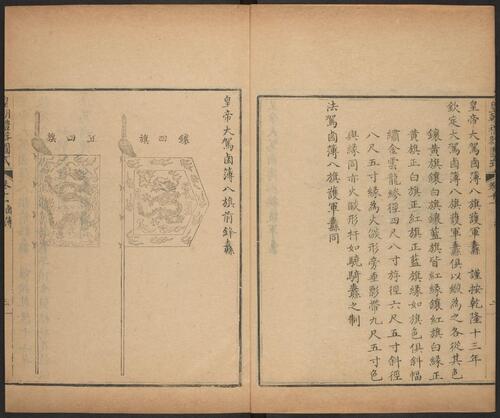 皇帝大駕鹵簿八旗護軍纛 謹按乾隆十三年
欽定大駕鹵簿八旗護軍纛俱以緞為之各從其色
鑲黃旗鑲白旗鑲藍旗皆紅緣鑲紅旗白緣正
黃旗正白旗正紅旗正藍旗緣如旗色俱斜幅
繡金雲龍縿徑四尺八寸斿徑六尺五寸斜徑
八尺五寸緣為火燄形旁垂彤帶九尺五寸色
與緣同亦火燄形杆如驍騎纛之制
法駕鹵簿八旗護軍纛同
皇帝大駕鹵簿八旗前鋒纛
鑲四旗
正四旗
皇朝禮器圖式
鹵簿